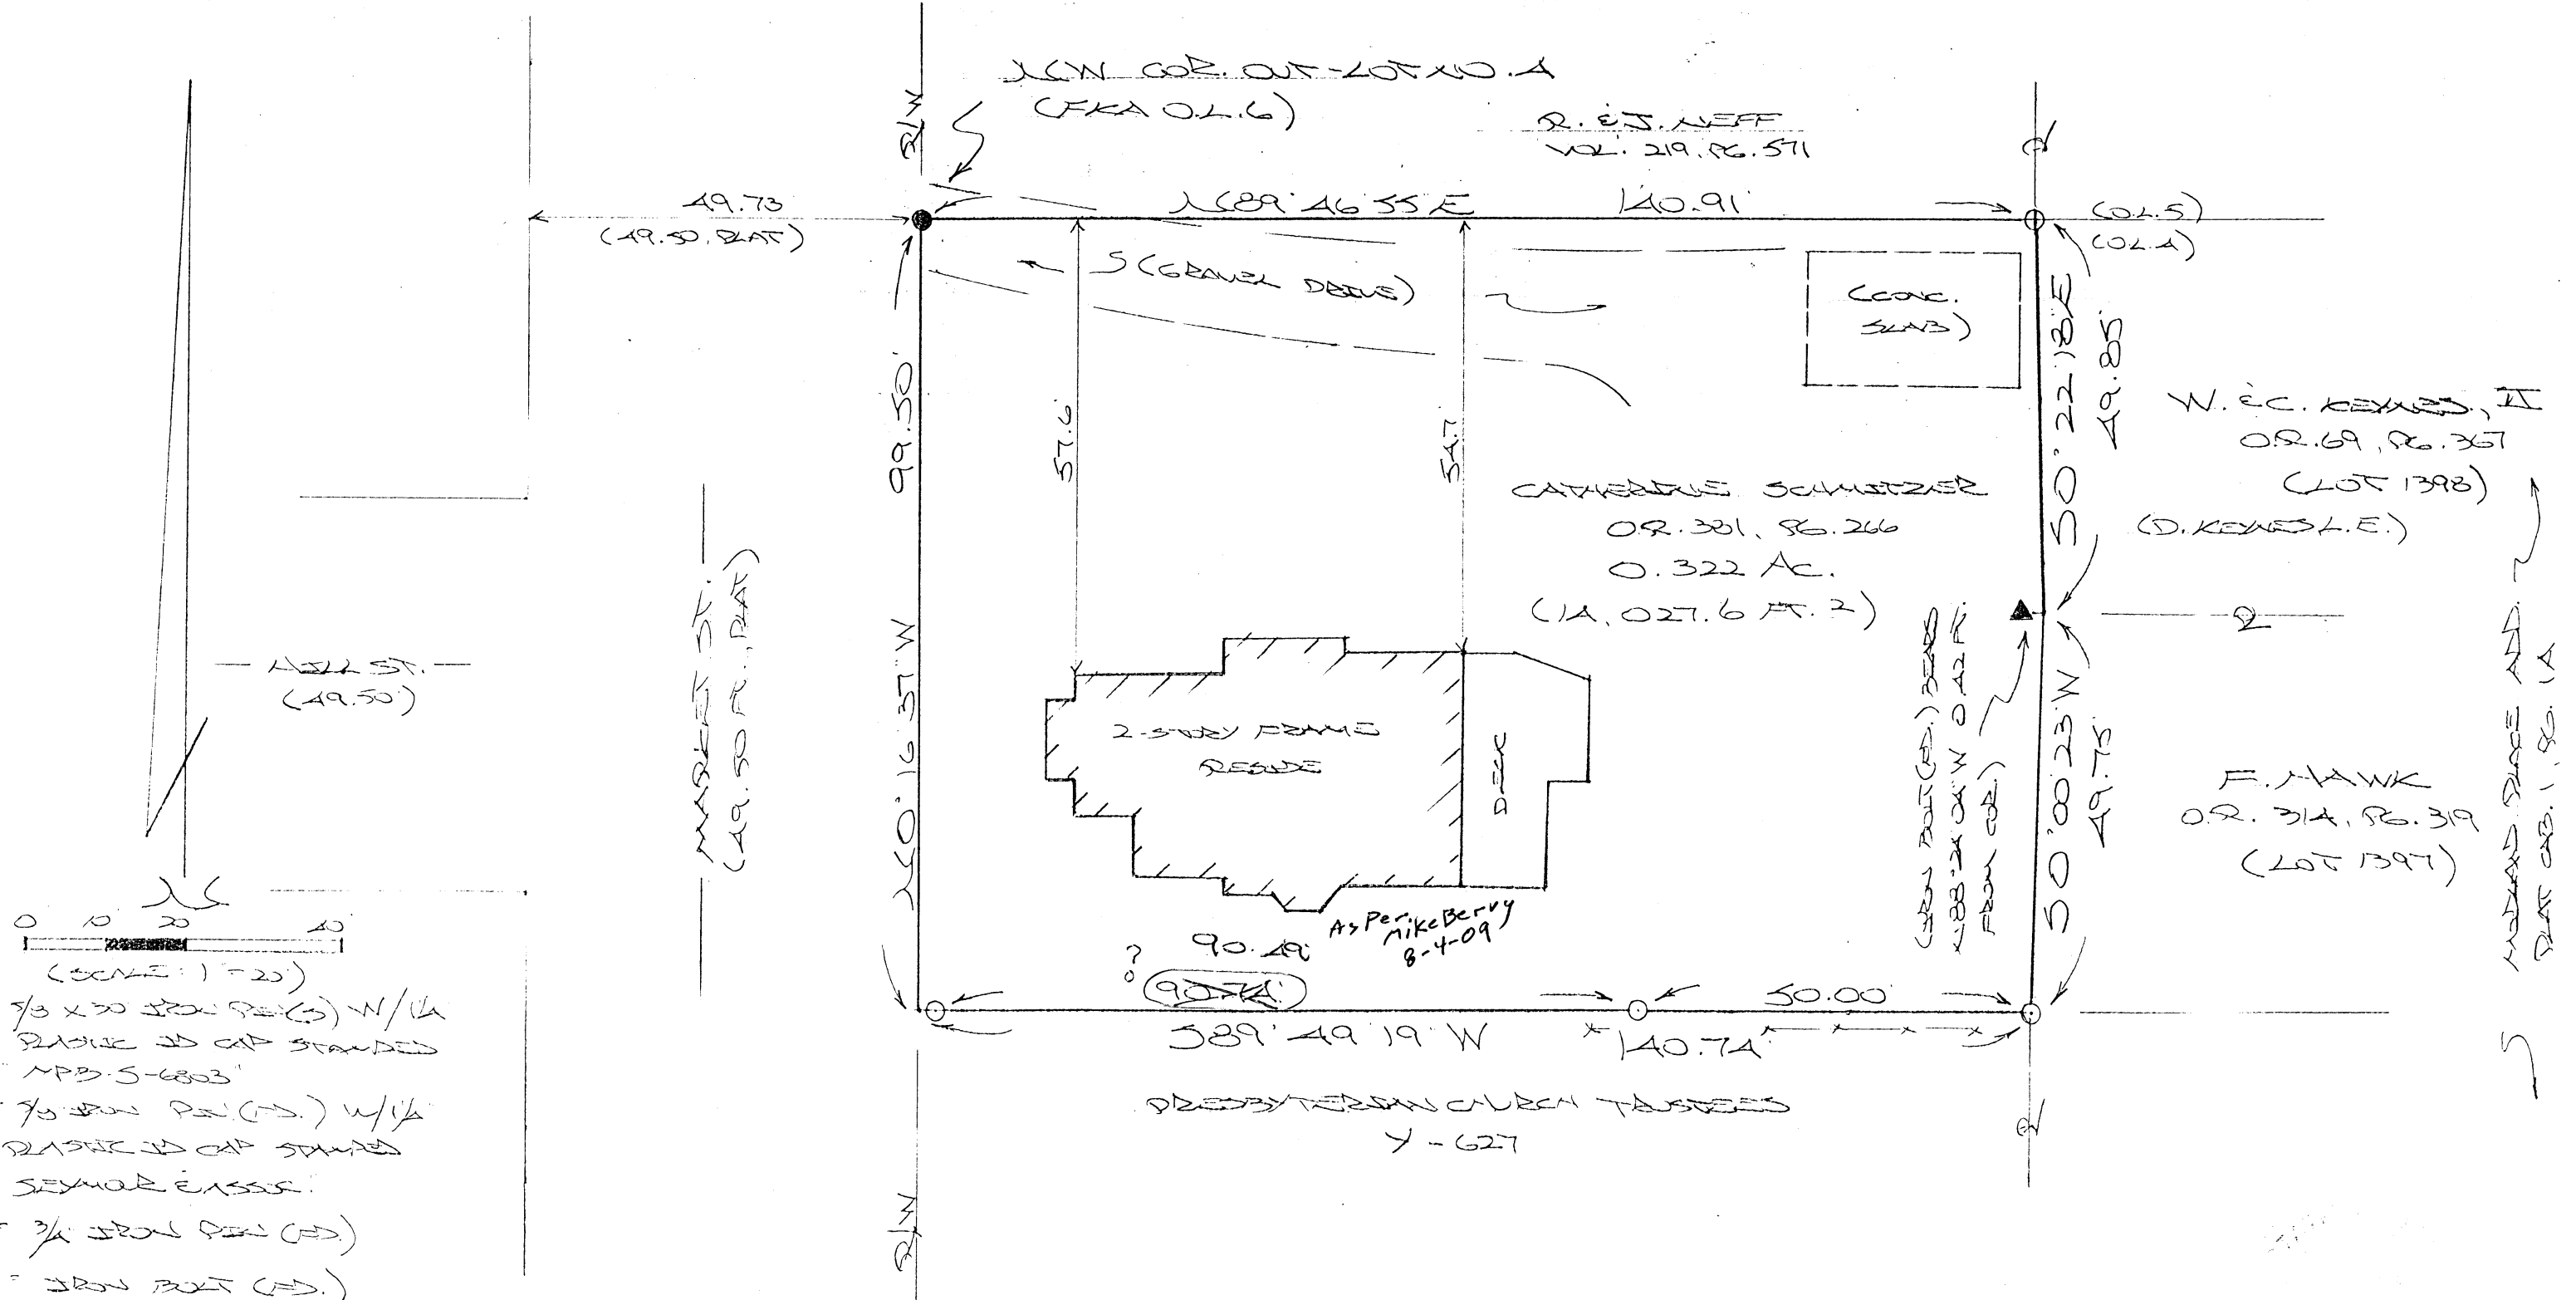 NW COR. OUT-LOT NO. 4
(FKA O.L.6)
R. & J. NEFF
VOL. 219, PG. 571
R/W
49.73'
(49.50, PLAT)
N89°46'55"E 140.91'
(O.L.5)
(O.L.4)
(GRAVEL DRIVE)
(CONC.
SLAB)
99.50'
N0°16'37"W
57.6'
54.7'
S0°22'18"E
49.85'
W. & C. KEYNES, II
O.R. 69, PG. 367
(LOT 1398)
(D. KEYNES L.E.)
CATHERINE SCHMITZER
O.R. 381, PG. 266
0.322 AC.
(14,027.6 FT.2)
MILL ST.
(49.50')
MARKET ST.
(49.50 FT., PLAT)
2-STORY FRAME
RESIDE
DECK
(IRON BOLT (FD.) BEARS
N88°24'04"W 0.42 FT.
FROM COR.)
S0°00'23"W
49.75'
F. HAWK
O.R. 314, PG. 319
(LOT 1397)
MIDLAND PLACE ADD.
PLAT CAB. 1, PG. 14
N
0 10 20 40
(SCALE: 1"=20')
As Per
Mike Berry
8-4-09
?
90.49'
(90.74')
50.00'
S89°49'19"W 140.74'
PRESBYTERIAN CHURCH TRUSTEES
Y-627
R/W
5/8 X 30 IRON PIN(S) W/1 1/4
PLASTIC ID CAP STAMPED
"MPB-S-6803"
5/8 IRON PIN (FD.) W/1 1/4
PLASTIC ID CAP STAMPED
SEYMOUR & ASSOC.
3/4 IRON PIN (FD.)
= IRON BOLT (FD.)